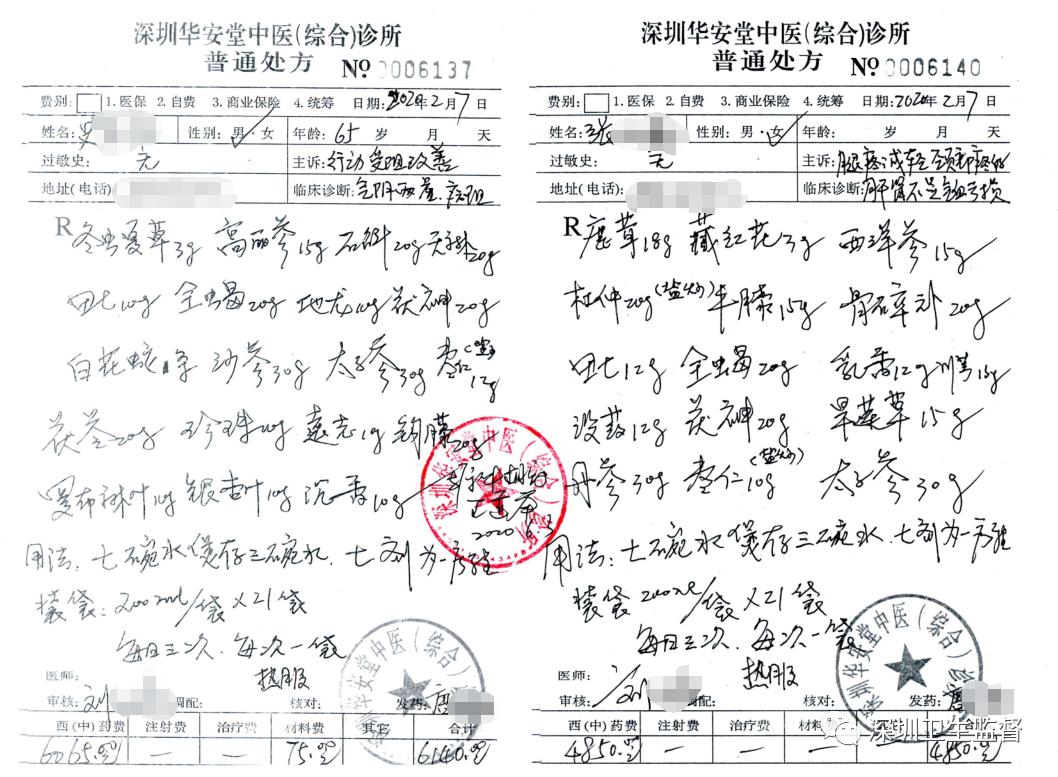 深圳华安堂中医(综合)诊所
普通处方 № 0006137
费别: 1.医保 2.自费 3.商业保险 4.统筹 日期:2020年2月7日
姓名: 性别:男·女 年龄:65岁 月 天
过敏史:无 主诉:行动受阻改善
地址(电话) 临床诊断:
R 冬虫夏草3g 高丽参15g 石斛20g 20g
田七10g 全虫 20g 地龙10g 茯神20g
白花蛇 沙参30g 太子参30g 枣仁 12g
茯苓20g 珍珠 10g 远志 钩藤20g
罗布麻叶10g 银杏叶10g 沉香10g
用法:七碗水煲存三碗水,七剂为一疗程
装袋:200ml/袋×21袋
每日三次,每次一袋
热服
医师:
审核:刘 调配: 核对: 发药:
西(中)药费 注射费 治疗费 材料费 其它 合计
6065.00 — — 75.00 6140.00
深圳华安堂中医(综合)诊所
2020
深圳华安堂中医(综合)诊所
深圳华安堂中医(综合)诊所
普通处方 № 0006140
费别: 1.医保 2.自费 3.商业保险 4.统筹 日期:2020年2月7日
姓名:张 性别:男·女 年龄: 岁 月 天
过敏史:无 主诉:
地址(电话): 临床诊断:肝肾不足
R 鹿茸18g 藏红花3g 西洋参15g
杜仲20g(盐炒) 牛膝15g 骨碎补20g
田七12g 全虫 20g 乳香12g 川芎15g
没药12g 茯神20g 旱莲草15g
丹参30g 枣仁10g(盐炒) 太子参30g
用法:七碗水煲存三碗水,七剂为一疗程
装袋200ml/袋×21袋
每日三次,每次一袋
热服
医师:
审核:刘 调配: 核对: 发药:
西(中)药费 注射费 治疗费 材料
4850.00 — — — — 4850.00
深圳华安堂中医(综合)诊所
深圳卫生监督